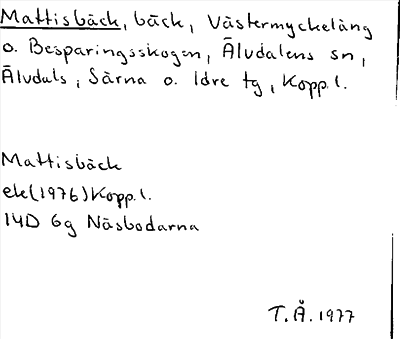 Mattisbäck, bäck, Västermyckeläng
o. Besparingsskogen, Älvdalens sn,
Älvdals, Särna o. Idre tg, Kopp.l.
Mattisbäck
ek(1976)Kopp.l.
14D 6g Näsbodarna
T.Å. 1977